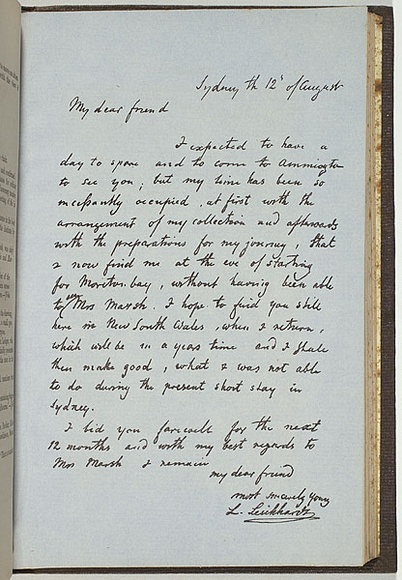 Sydney th 12' of August
My dear friend
I expected to have a
day to spare and to come to Ammington
to see you; but my time has been so
incessantly occupied, at first with the
arrangement of my collection and afterwards
with the preparations for my journey, that
I now find me at the eve of starting
for Moriton bay, without having been able
to see Mrs Marsh. I hope to find you still
here in New South Wales, when I return,
which will be in a years time and I shale
then make good, what I was not able
to do during the present short stay in
Sydney.
I bid you farewell for the next
12 months and with my best regards to
Mrs Marsh I remain
my dear friend
most sincerely yours
L. Leichhardt